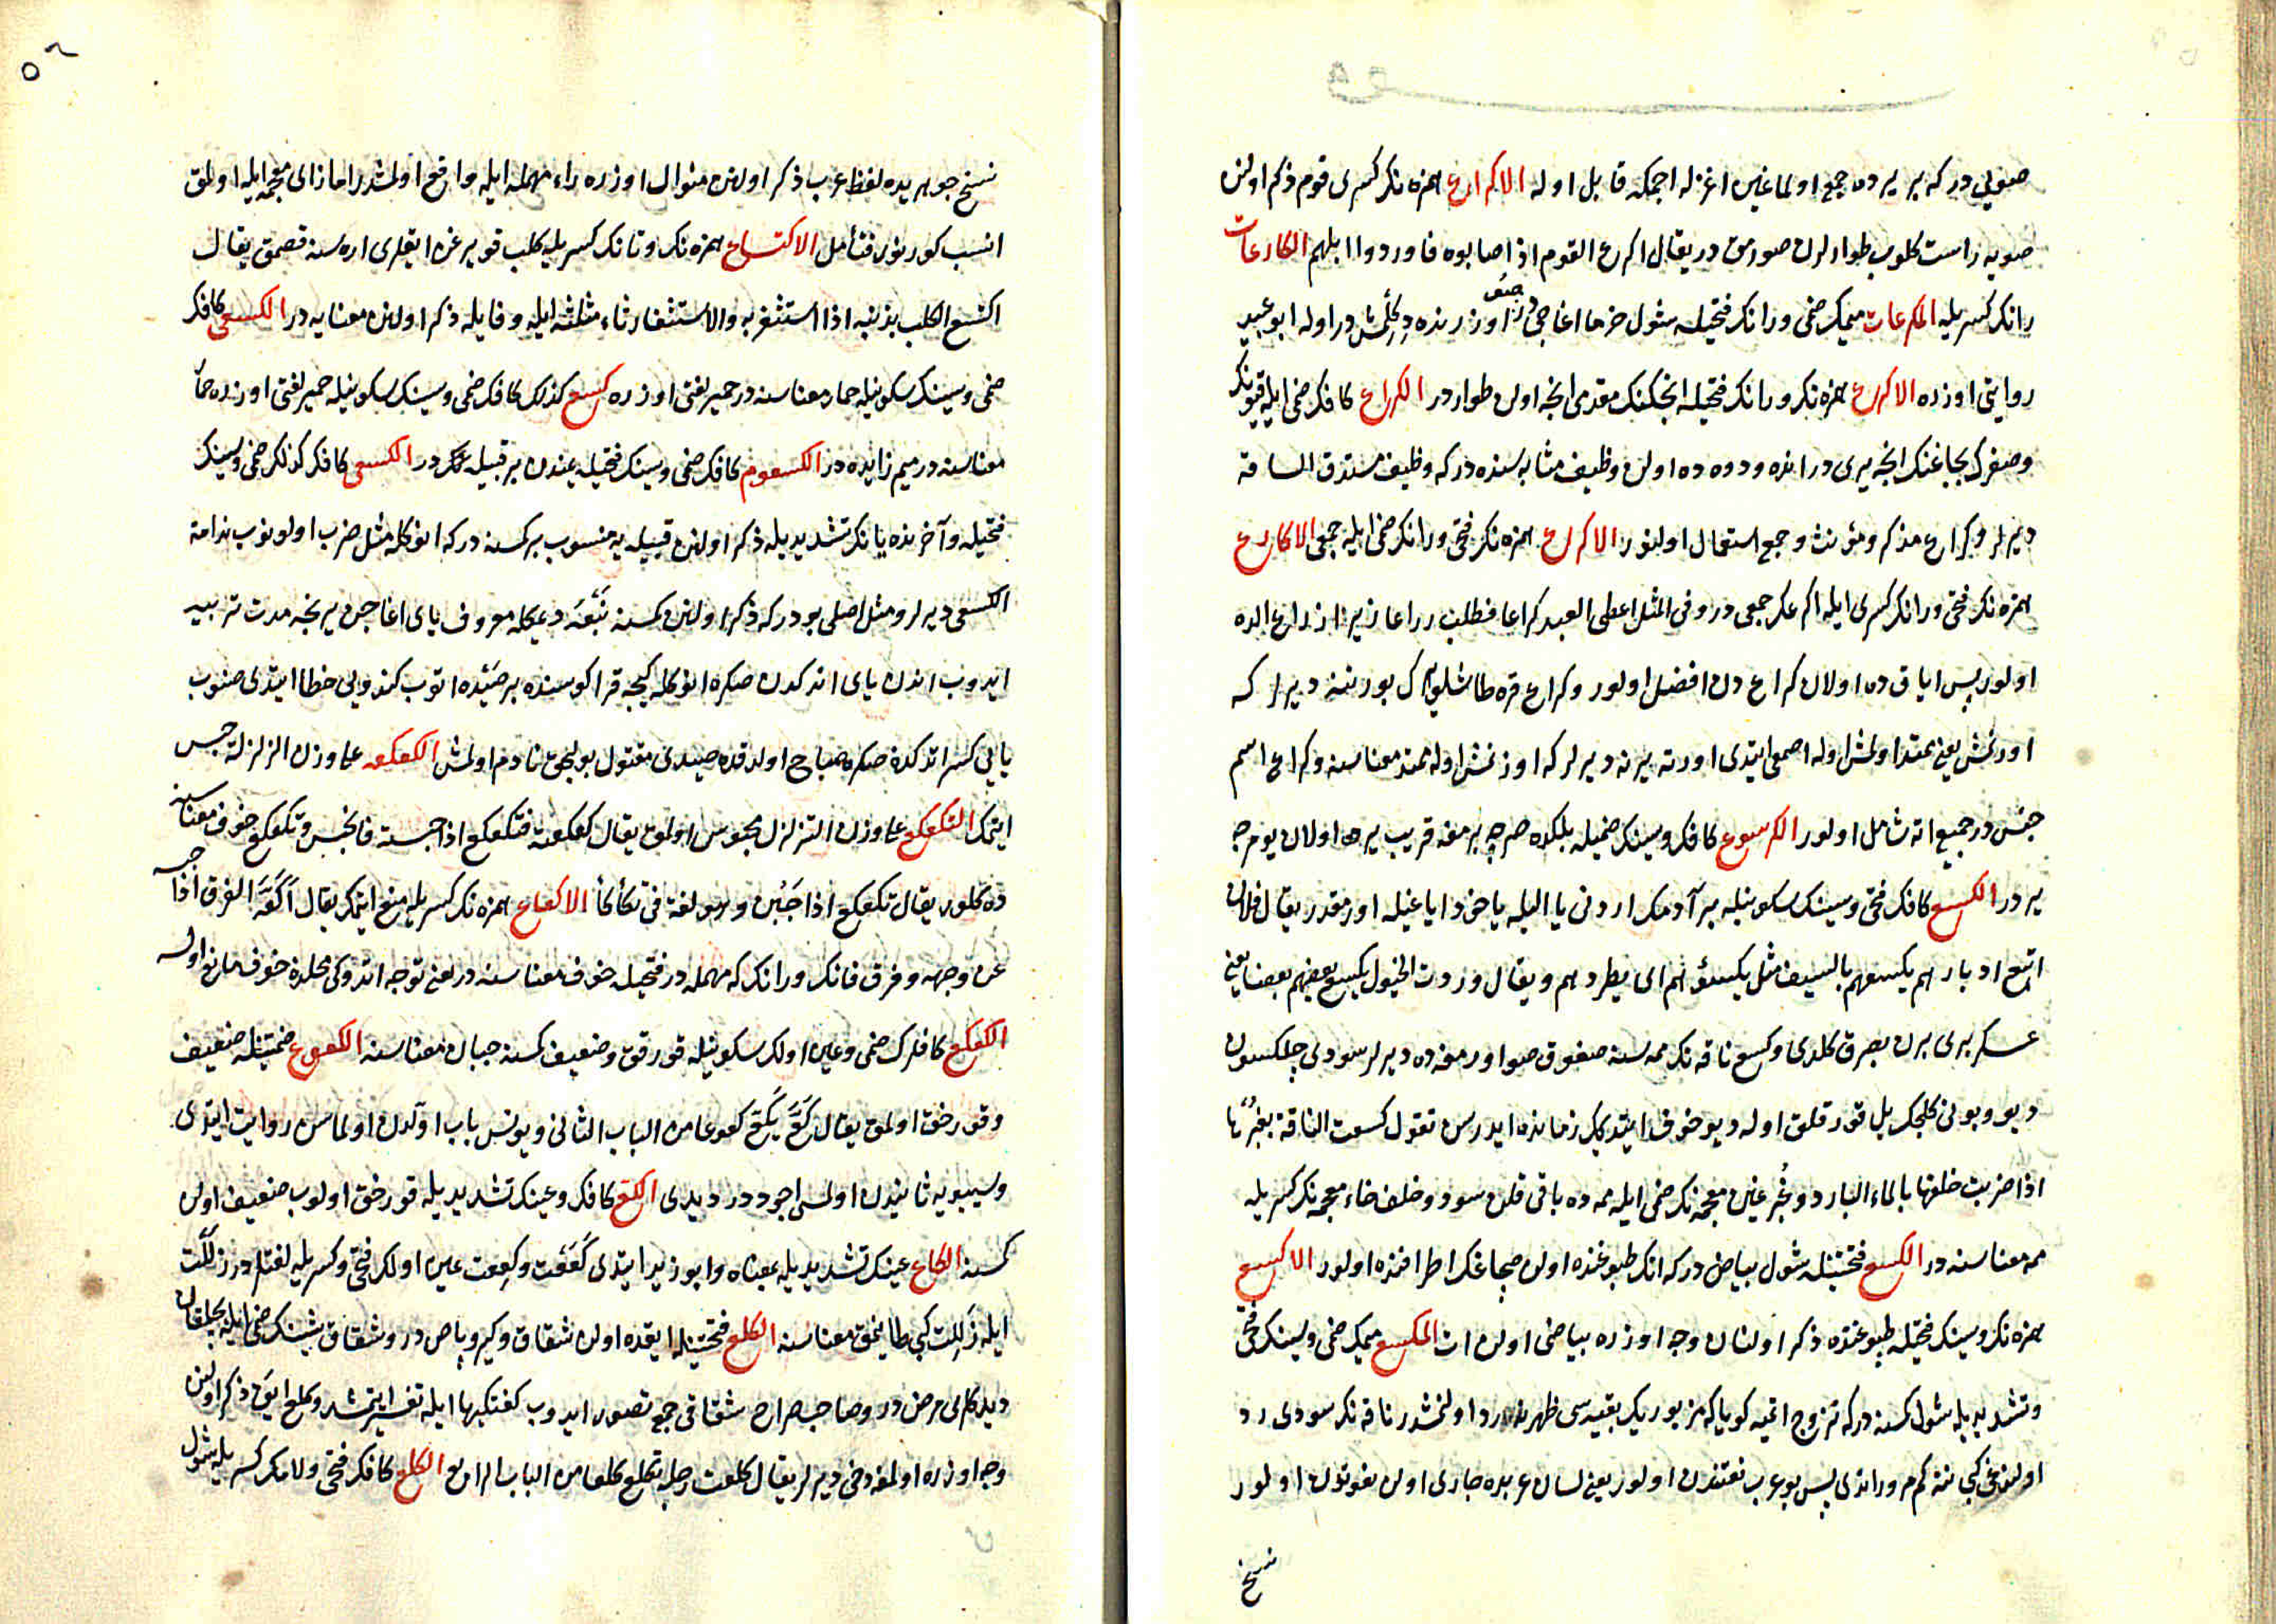 صوىي در كه بر يرده جمع اولما غين اغزله اجمكه قابل اوله الاكراع همزه نك كسرى قوم ذكر اولنن
صويه راست كلوب طوارلرن صورمق در يقال اكرع القوم اذا اصابوه فاوردوا ابلهم الكارعات
رانك كسريله المكرعات ميمك ضمى و رانك فتحيله شول خرما اغاجى در اوزرنده دكلمش در اوله ابو عبيد
روايتى اوزره الاكرع همزه نك و رانك فتحيله اينجكنك مقدمى اينجه اولن طوار در الكراع كافك ضمى ايله قيونك
و صغرك بجاغنك اينجه يرى در اتده و دوه ده اولن وظيف مثابه سنده در كه وظيف مستدق الساقه
ديرلر و كراع مذكر و مؤنث و جمع استعمال اولنور الاكرع همزه نك فتحى و رانك ضمى ايله جمعى الاكارع
همزه نك فتحى و رانك كسرى ايله اكرعك جمعى در و فى المثل اعطى العبد كراعا فطلب ذراعا زيرا ذراع الده
اولور پس اياق ده اولان كراع دن افضل اولور و كراع قره طاشلو يرك بورننه ديرلر كه
اوزنمش يعنى ممتد اولمش اوله اصمعى ايتدى اورته يرنه ديرلر كه اوزنمش اوله ممتد معناسنه و كراع اسم
جنس در جميع اته شامل اولور الكرسوع كافك و سينك ضميله بلكده صرچه برمغه قريب يرده اولان يومرجه
ير در الكسع كافك فتحى و سينك سكونيله بر آدمك اردنى يا اليله ياخود اياغيله اورمقدر يقال فلان
اتبع ادبارهم يكسعهم بالسيف مثل يكسؤهم اى يطردهم و يقال وردت الخيول يكسع بعضهم بعضا يعنى
عسكر برى برن بصرق كلدى و كسع ناقه نك ممه سنه صغوق صو اورمغه ده ديرلر سودى چكلسون
ديو و بونى كلجك يل قورقلق اوله ديو خوف ايتدكلرى زمانده ايدرسن تقول كسعت الناقة بغبرها
اذا ضربت خلفها بالماء البارد و غبر غين معجمه نك ضمى ايله ممه ده باقى قلن سود و خلف خاء معجمه نك كسريله
ممه معناسنه در الكسع فتحتينله شول بياض در كه اتك طپوغنده اولن صچاغنك اطرافنده اولور الاكسع
همزه نك و سينك فتحيله طپوغنده ذكر اولنان وجه اوزره بياضى اولن ات المكسع ميمك ضمى و سينك فتحى
و تشديديله شول كسنه در كه تزوج اتميه كويا كه مزبورك بقيه سى ظهرينه رد اولنمشدر ناقه نك سودى رد
اولندغى كبى ننه كم مرور اتدى پس بو عرب نعتندن اولور يعنى لسان عربده جارى اولن نعوتدن اولور
نسخ
نسخ جوهريده لفظ عرب ذكر اولنن منوال اوزره راء مهمله ايله واقع اولمشدر اما زاى معجمه ايله اولمق
انسب كورينور فتأمل الاكتساع همزه نك و تانك كسريله كلب قويرغن ايقلرى اره سنه قصمق يقال
اكتسع الكلب بذنبه اذا استثفر به والاستثفار ثاء مثلثه ايله و فا ايله ذكر اولنن معنايه در الكسعى كافك
ضمى و سينك سكونيله حمار معناسنه در حمير لغتى اوزره كسع كذلك كافك ضمى و سينك سكونيله حمير لغتى اوزره حمار
معناسنه در ميم زايده در الكسعوم كافك ضمى و سينك فتحيله يمندن بر قبيله نك در الكسعى كافك كذلك ضمى و سينك
فتحيله و آخرنده يانك تشديديله ذكر اولنن قبيله يه منسوب بر كسنه در كه انوكله مثل ضرب اولونوب ندامة
الكسعى ديرلر و مثل اصلى بودر كه ذكر اولنن كسنه نبعه ديمكله معروف ياى اغاجن بر نجه مدت تربيه
ايدوب اندن ياى اتدكدن صكره انوكله كيجه قراكوسنده بر صيده اتوب كندويى خطا ايتدى صنوب
يايى كسر اتدكدن صكره صباح اولدقده صيدى مقتول بولجق نادم اولمش الكعكعه على وزن الزلزلة حبس
ايتمك التكعكع على وزن التزلزل محبوس اولمق يقال كعكعته فتكعكع اذا حبسته فانحبس و تكعكع خوف معناسنه
ده كلور يقال تكعكع اذا جبن و بو لغة فى تكأكأ الاكعاع همزه نك كسريله منع ايتمك يقال اكعه الفرق اذا حبسه
عن وجهه و فرق فانك و رانك كه مهمله در فتحيله خوف معناسنه در يعنى توجه اتدوكى محلدن خوف مانع اولسه
الكعكع كافلرك ضمى و عين اولك سكونيله قورقق و ضعيف كسنه جبان معناسنه الكعوع ضمتينله ضعيف
و قورخق اولمق يقال كع يكع كعوعا من الباب الثانى و يونس باب اولدن اولماسن روايت ايتدى
و سيبويه ثانيدن اولسى اجوددر ديدى الكع كافك و عينك تشديديله قورخق اولوب ضعيف اولن
كسنه الكاع عينك تشديديله بمعناه و ابو زيد ايتدى كععت و كععت عين اولك فتحى و كسريله لغتلر در زللت
ايله زللت كبى طاينمق معناسنه الكلع فتحتينله ايقده اولن شقاق و كير و پاص در و شقاق شينك ضمى ايله يلقان
ديدكلرى مرض در و صاحب صراح شقاقى جمع تصور ايدوب كفتكيها ايله تفسير ايتمشدر و كلع ايق ذكر اولنن
وجه اوزره اولمغه دخى ديرلر يقال كلعت رجله تكلع كلعا من الباب الرابع الكلع كافك فتحى و لامك كسريله شول